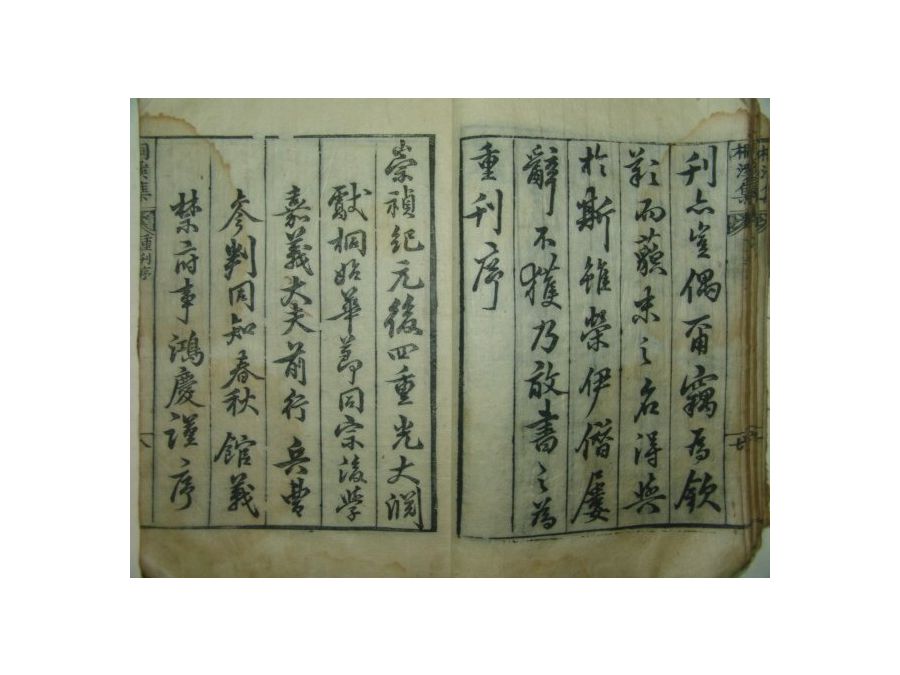 刊亦豈偶爾竊爲欽
歎而藐末之名得與
於斯雖榮伊僭屢
辭不獲乃敢書之爲
重刊序
崇禎紀元後四重光大淵
獻桐始華節同宗後學
嘉義大夫前行兵曹
參判同知春秋館義
禁府事鴻慶謹序
桐溪集
重刊序
八